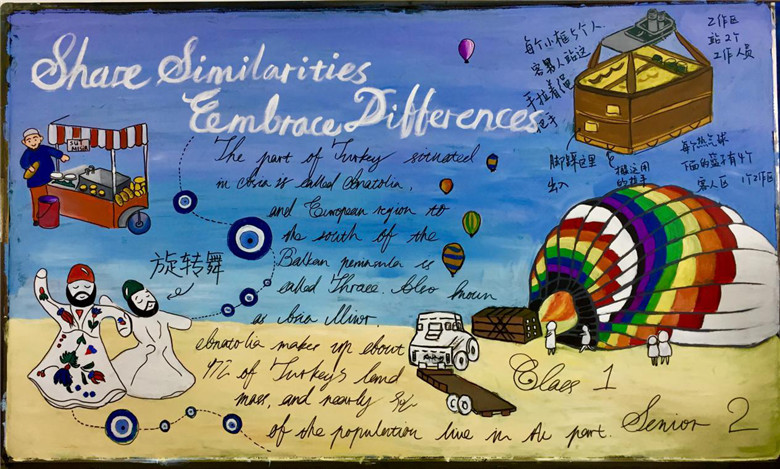 Share Similarities
Embrace Differences
The part of Turkey situated
in Asia is called Anatolia,
and European region to
the south of the
Balkan peninsula is
called Thrace. Also known
as Asia Minor,
Anatolia makes up about
97% of Turkey's land
mass, and nearly
of the population live in the part.
旋转舞
每个小框5个人
客人站这
手拉着绳
把手
工作区
站2个
工作人员
脚踩这里
出入
搬运用
的把手
每个热气球
下面的篮子有4个
客人区 1个工作区
Class 1
Senior 2